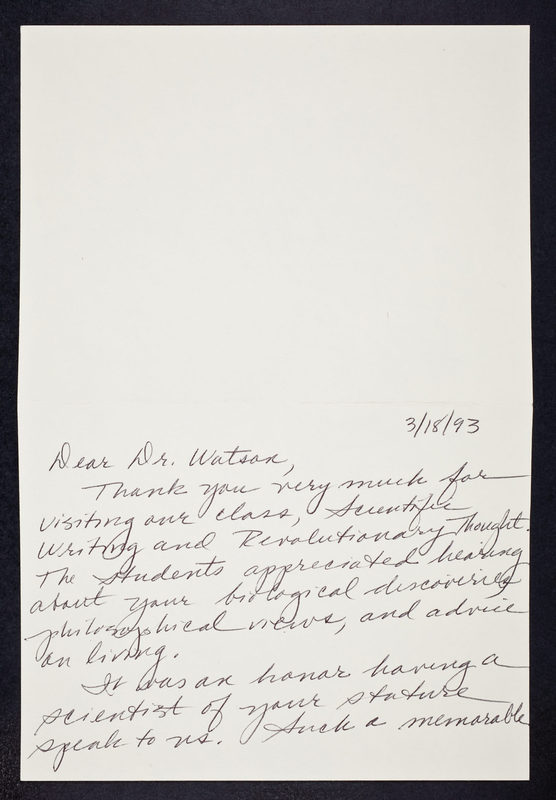 3/18/93
Dear Dr. Watson,
Thank you very much for
visiting our class, Scientific
Writing and Revolutionary Thought.
The students appreciated hearing
about your biological discoveries
philosophical views, and advice
on living.
It was an honor having a
scientist of your stature
speak to us. Such a memorable